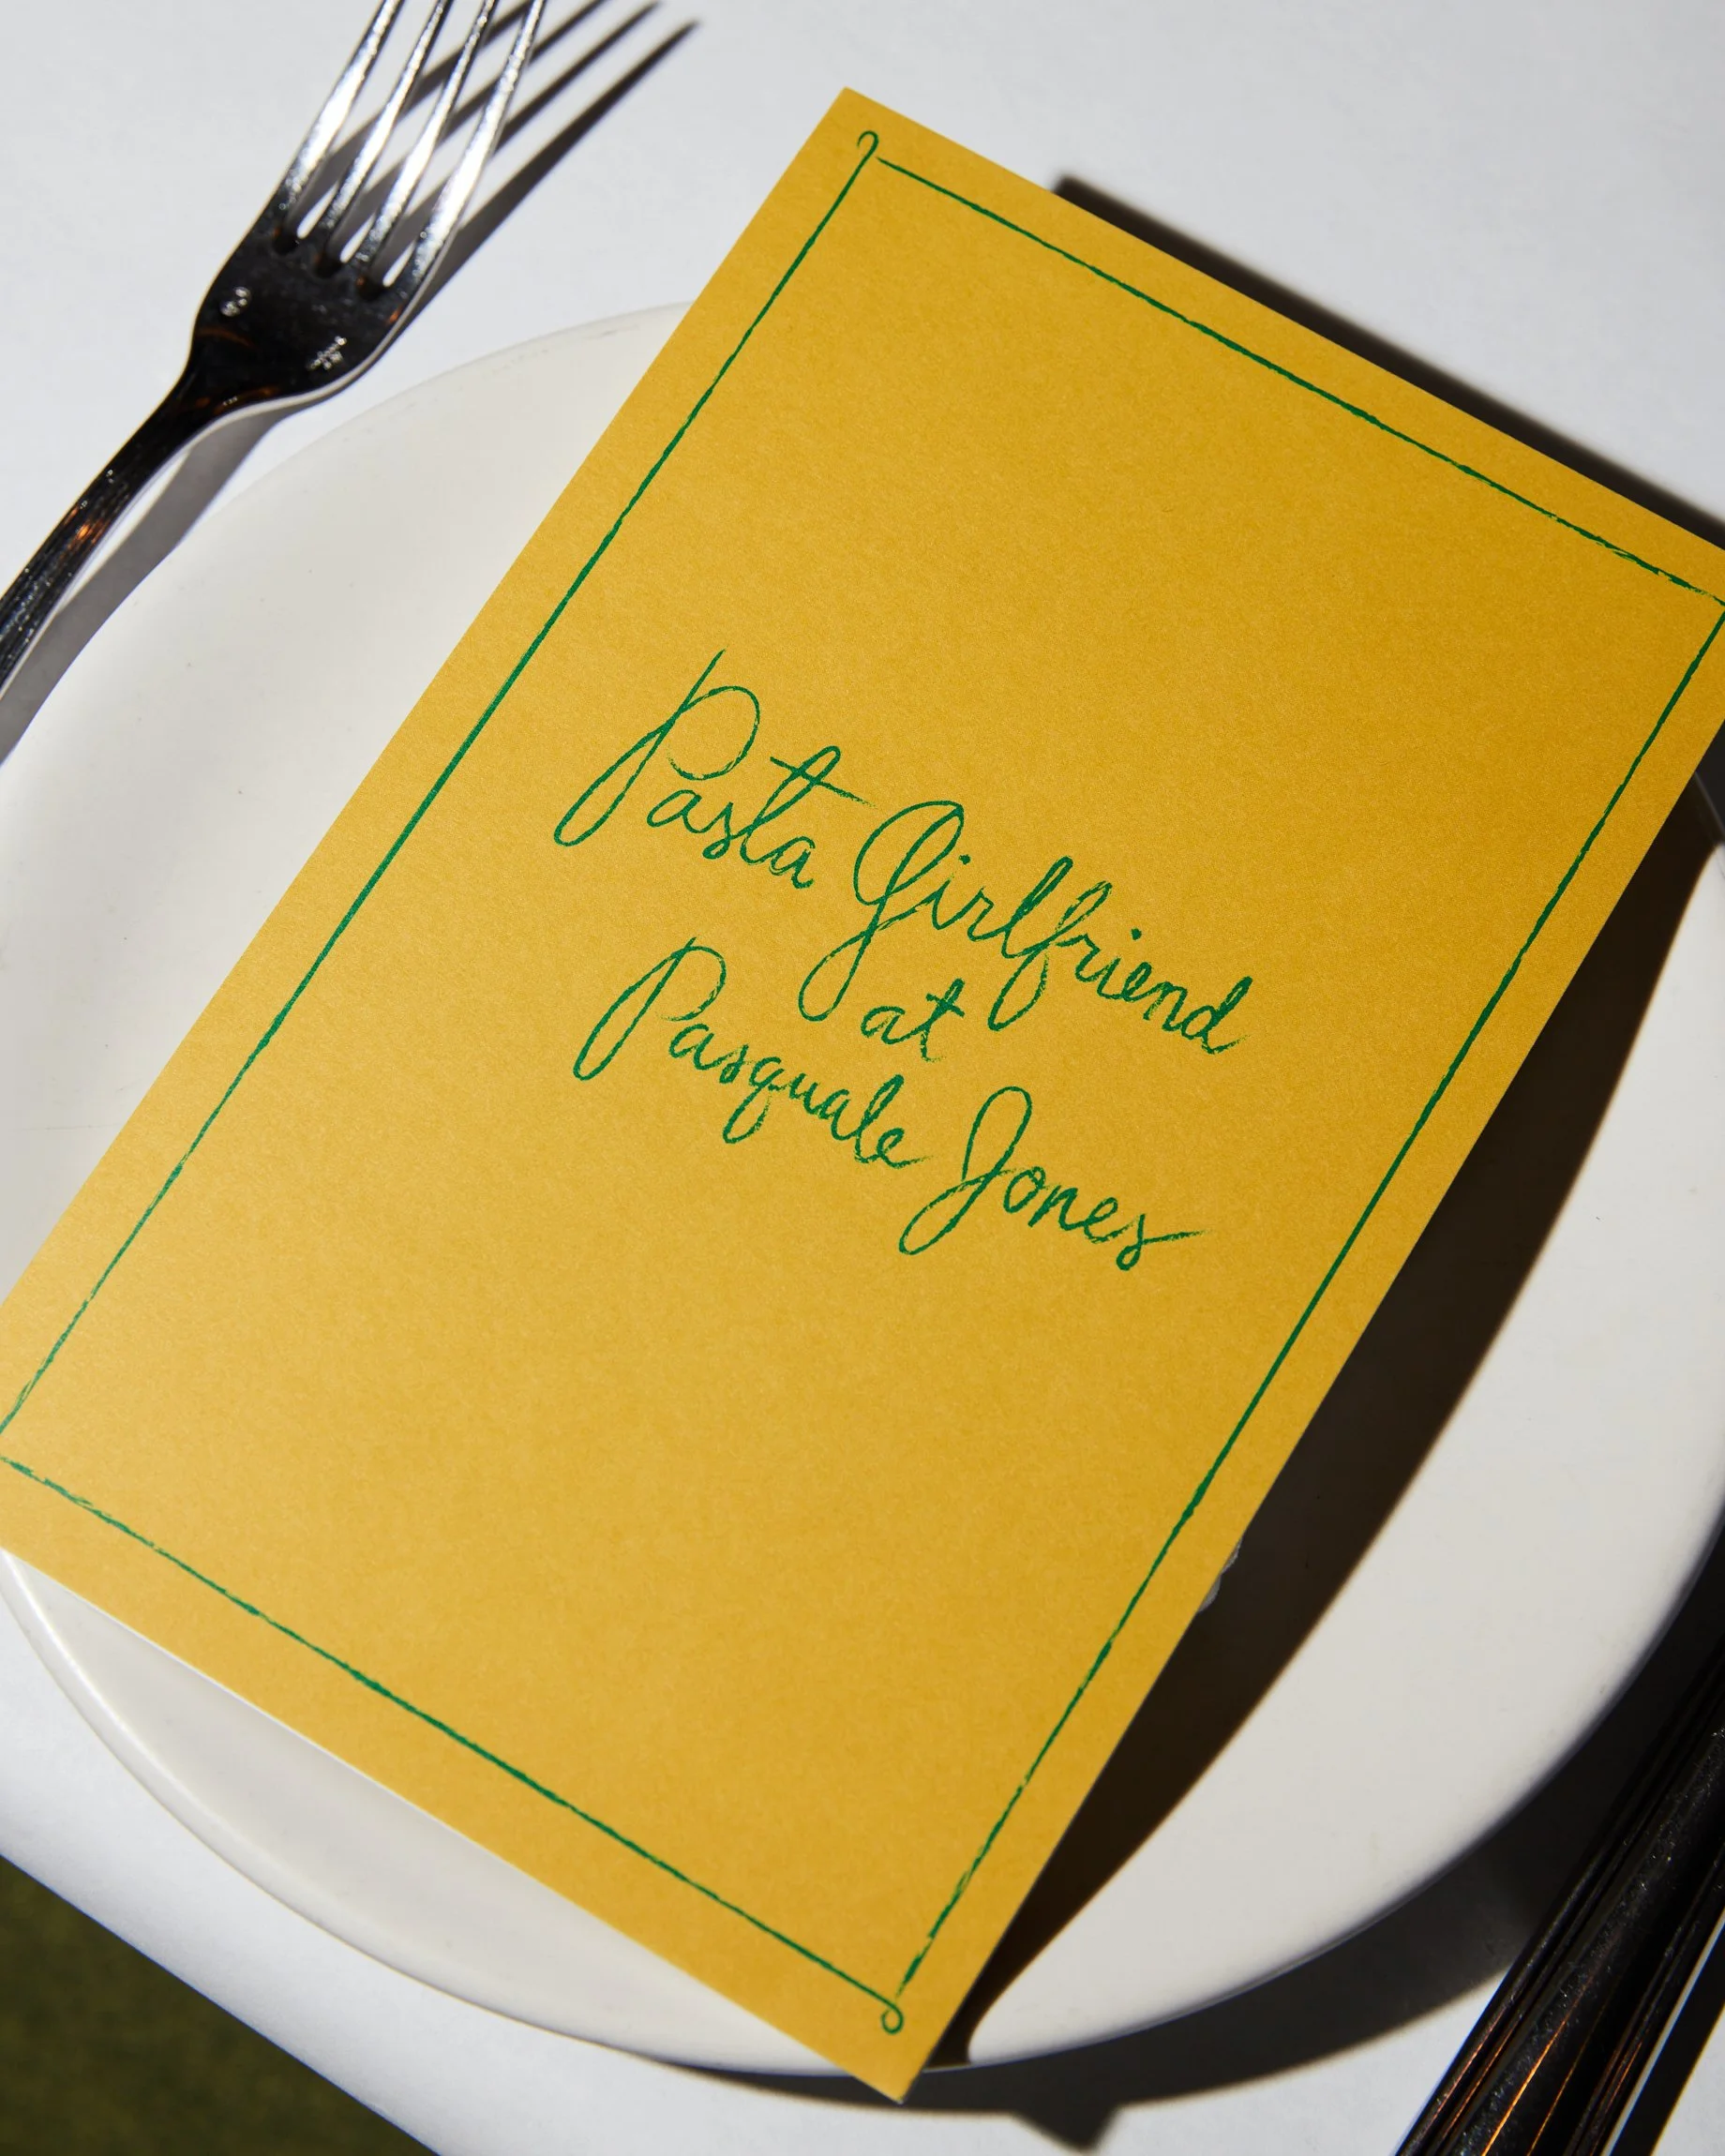 Pasta Girlfriend
at
Pasquale Jones